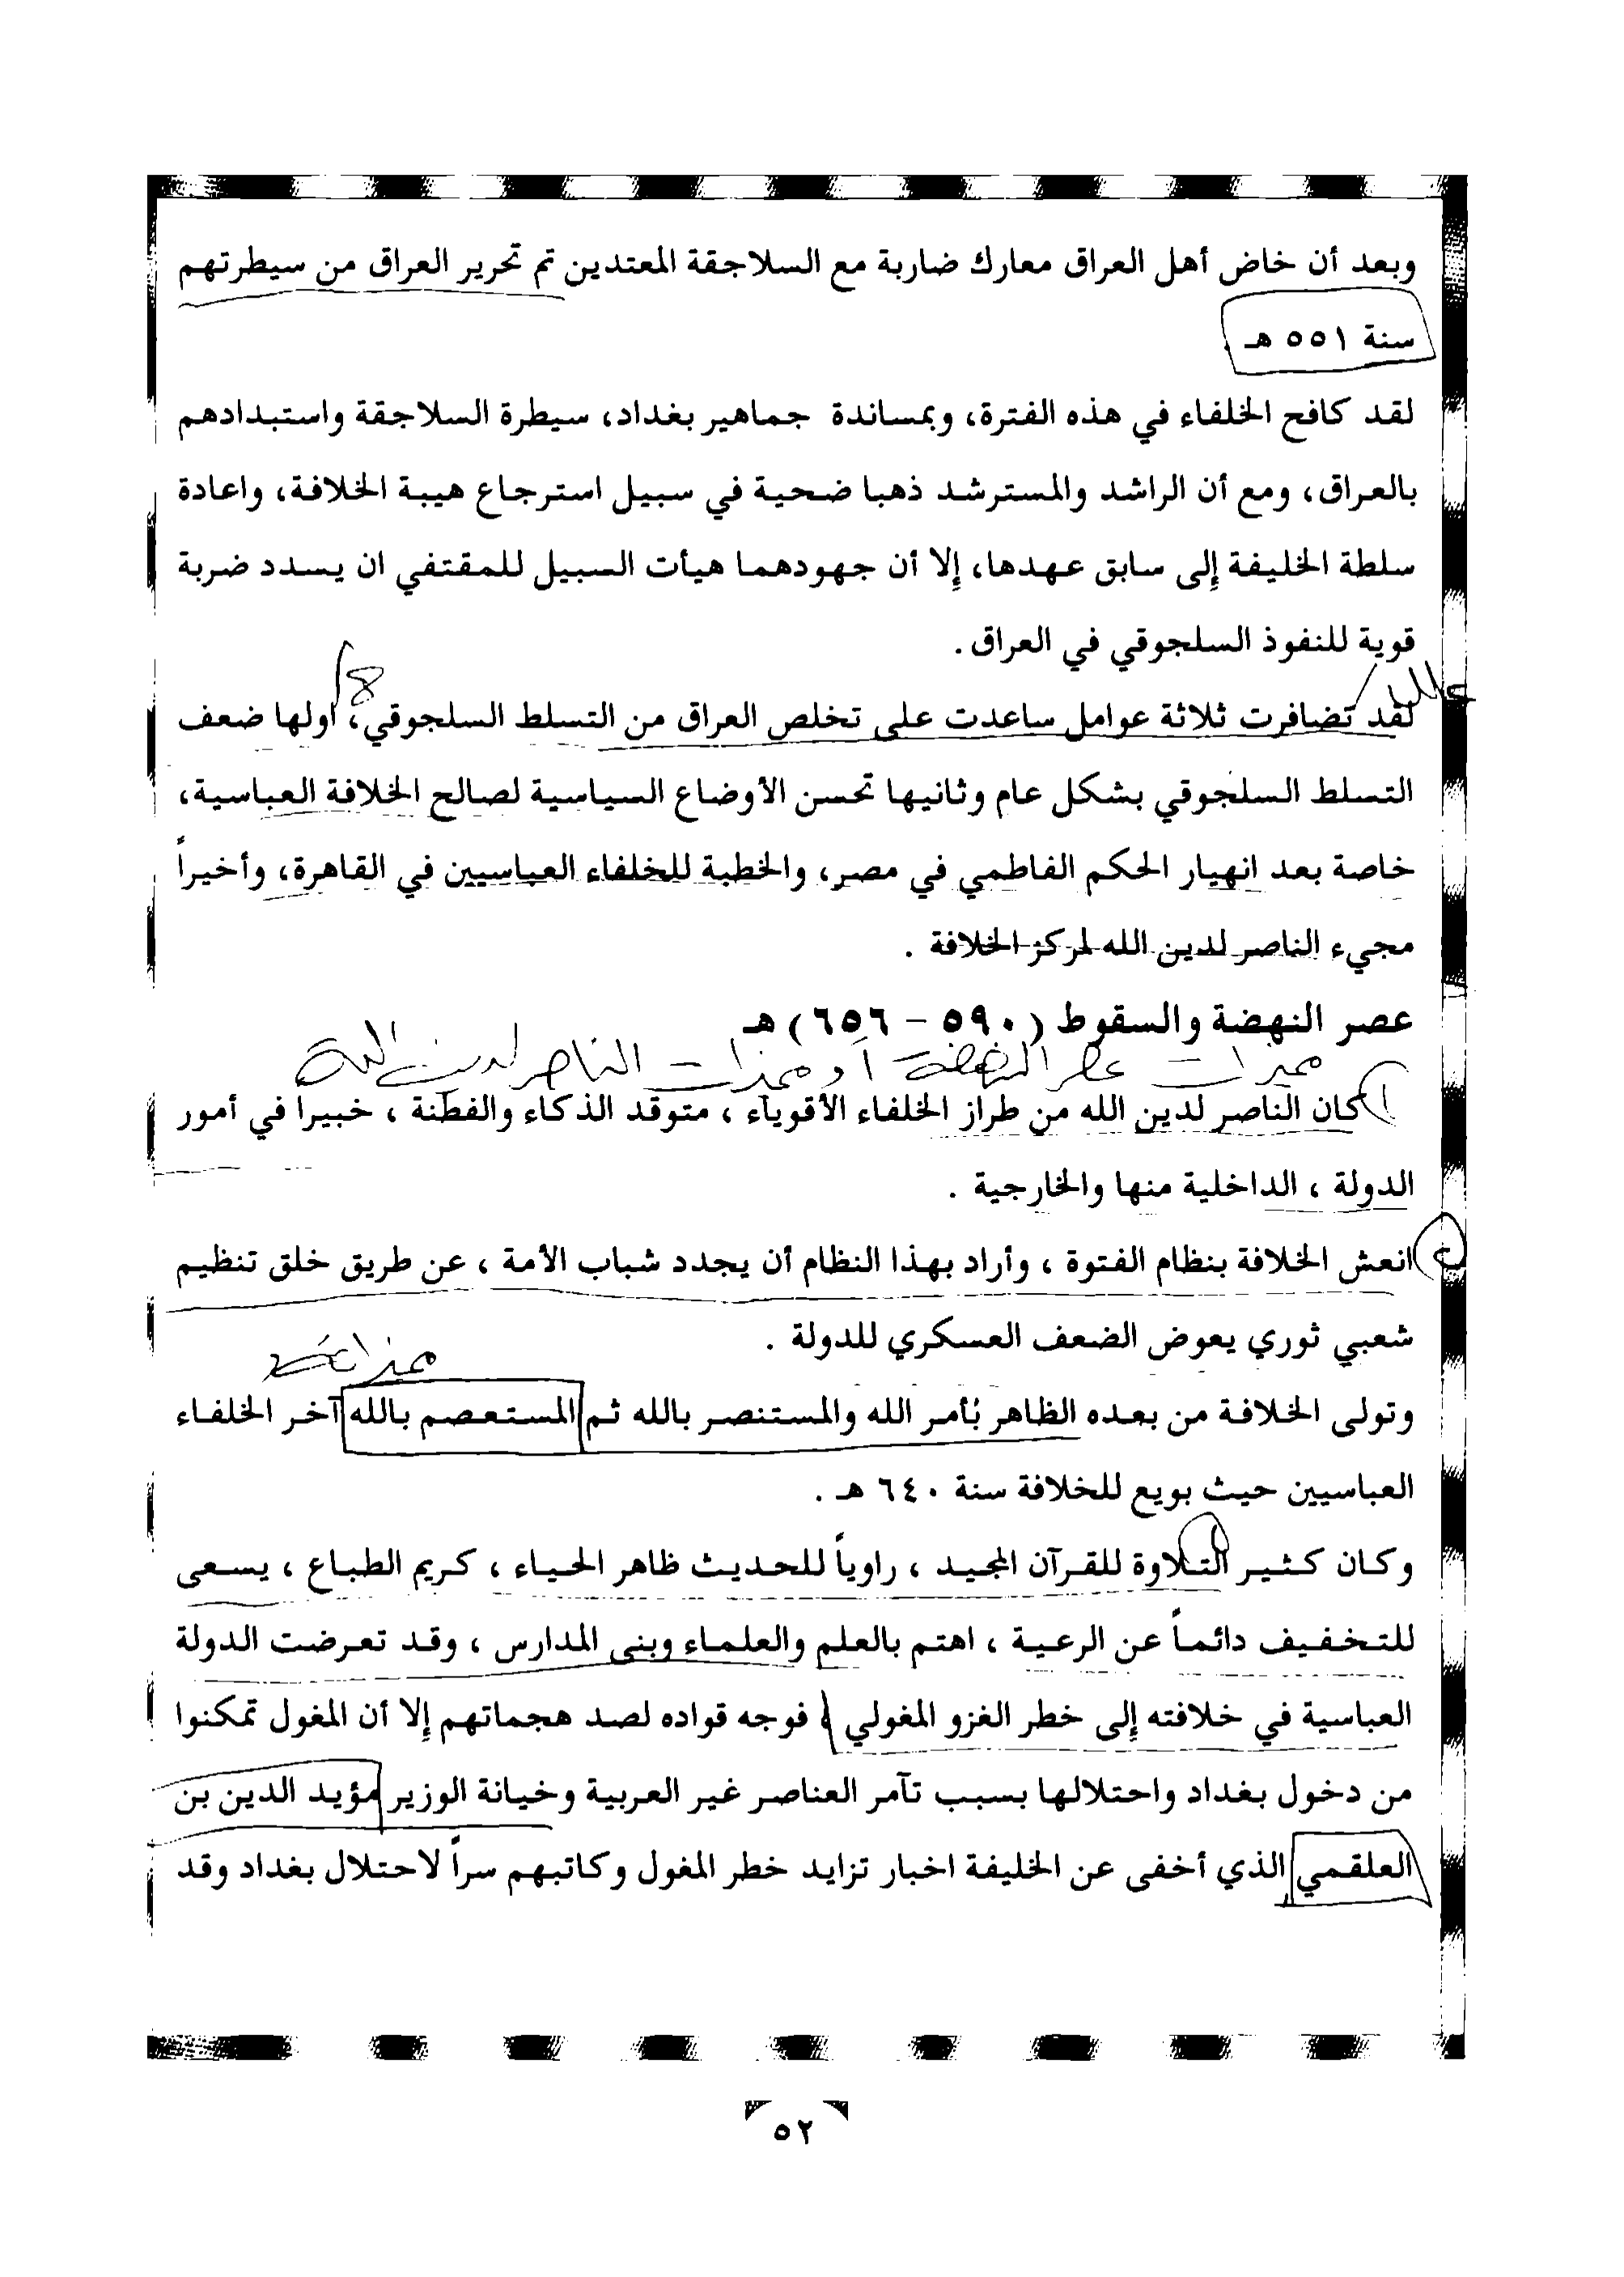 وبعد أن خاض أهل العراق معارك ضاربة مع السلاجقة المعتدين تم تحرير العراق من سيطرتهم
سنة ٥٥١ هـ
لقد كافح الخلفاء في هذه الفترة، وبمساندة جماهير بغداد، سيطرة السلاجقة واستبدادهم
بالعراق، ومع أن الراشد والمسترشد ذهبا ضحية في سبيل استرجاع هيبة الخلافة، واعادة
سلطة الخليفة إلى سابق عهدها، إلا أن جهودهما هيأت السبيل للمقتفي ان يسدد ضربة
قوية للنفوذ السلجوقي في العراق.
لقد تضافرت ثلاثة عوامل ساعدت على تخلص العراق من التسلط السلجوقي، اولها ضعف
التسلط السلجوقي بشكل عام وثانيها تحسن الأوضاع السياسية لصالح الخلافة العباسية،
خاصة بعد انهيار الحكم الفاطمي في مصر، والخطبة للخلفاء العباسيين في القاهرة، وأخيراً
مجيء الناصر لدين الله لمركز الخلافة .
عصر النهضة والسقوط (٥٩٠ - ٦٥٦) هـ
مميزات عصر النهضة أو مميزات الناصر لدين الله
١) كان الناصر لدين الله من طراز الخلفاء الأقوياء ، متوقد الذكاء والفطنة ، خبيرا في أمور
الدولة ، الداخلية منها والخارجية .
٢) انعش الخلافة بنظام الفتوة ، وأراد بهذا النظام أن يجدد شباب الأمة ، عن طريق خلق تنظيم
شعبي ثوري يعوض الضعف العسكري للدولة .
وتولى الخلافة من بعده الظاهر بأمر الله والمستنصر بالله ثم المستعصم بالله آخر الخلفاء
العباسيين حيث بويع للخلافة سنة ٦٤٠ هـ .
وكان كثير التلاوة للقرآن المجيد ، راوياً للحديث ظاهر الحياء ، كريم الطباع ، يسعى
للتخفيف دائماً عن الرعية ، اهتم بالعلم والعلماء وبنى المدارس ، وقد تعرضت الدولة
العباسية في خلافته إلى خطر الغزو المغولي ، فوجه قواده لصد هجماتهم إلا أن المغول تمكنوا
من دخول بغداد واحتلالها بسبب تآمر العناصر غير العربية وخيانة الوزير مؤيد الدين بن
العلقمي الذي أخفى عن الخليفة اخبار تزايد خطر المغول وكاتبهم سراً لاحتلال بغداد وقد
٥٢